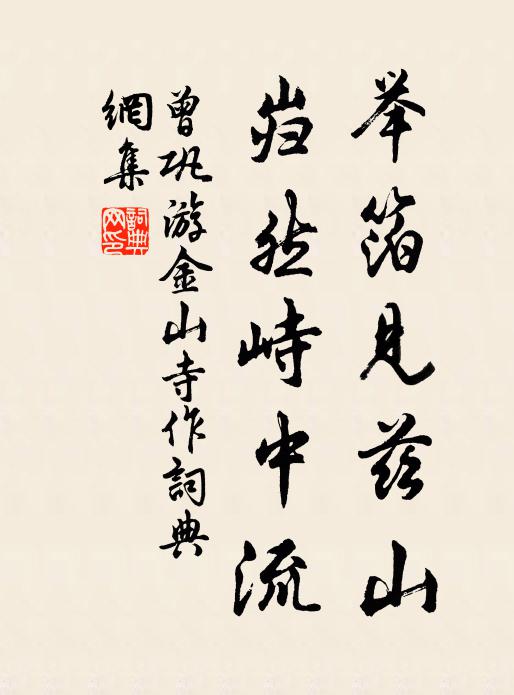 举箔见兹山
岿然峙中流
曾巩游金山寺作詞典
網集
詞典
网印